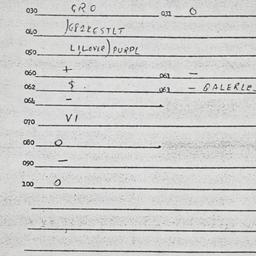 030 GRO 033 0
040
050 LILOVER) PURPL
060 + 061 -
062 $. 063 - GALERIE
064 -
070 VI
080 0
090 -
100 0